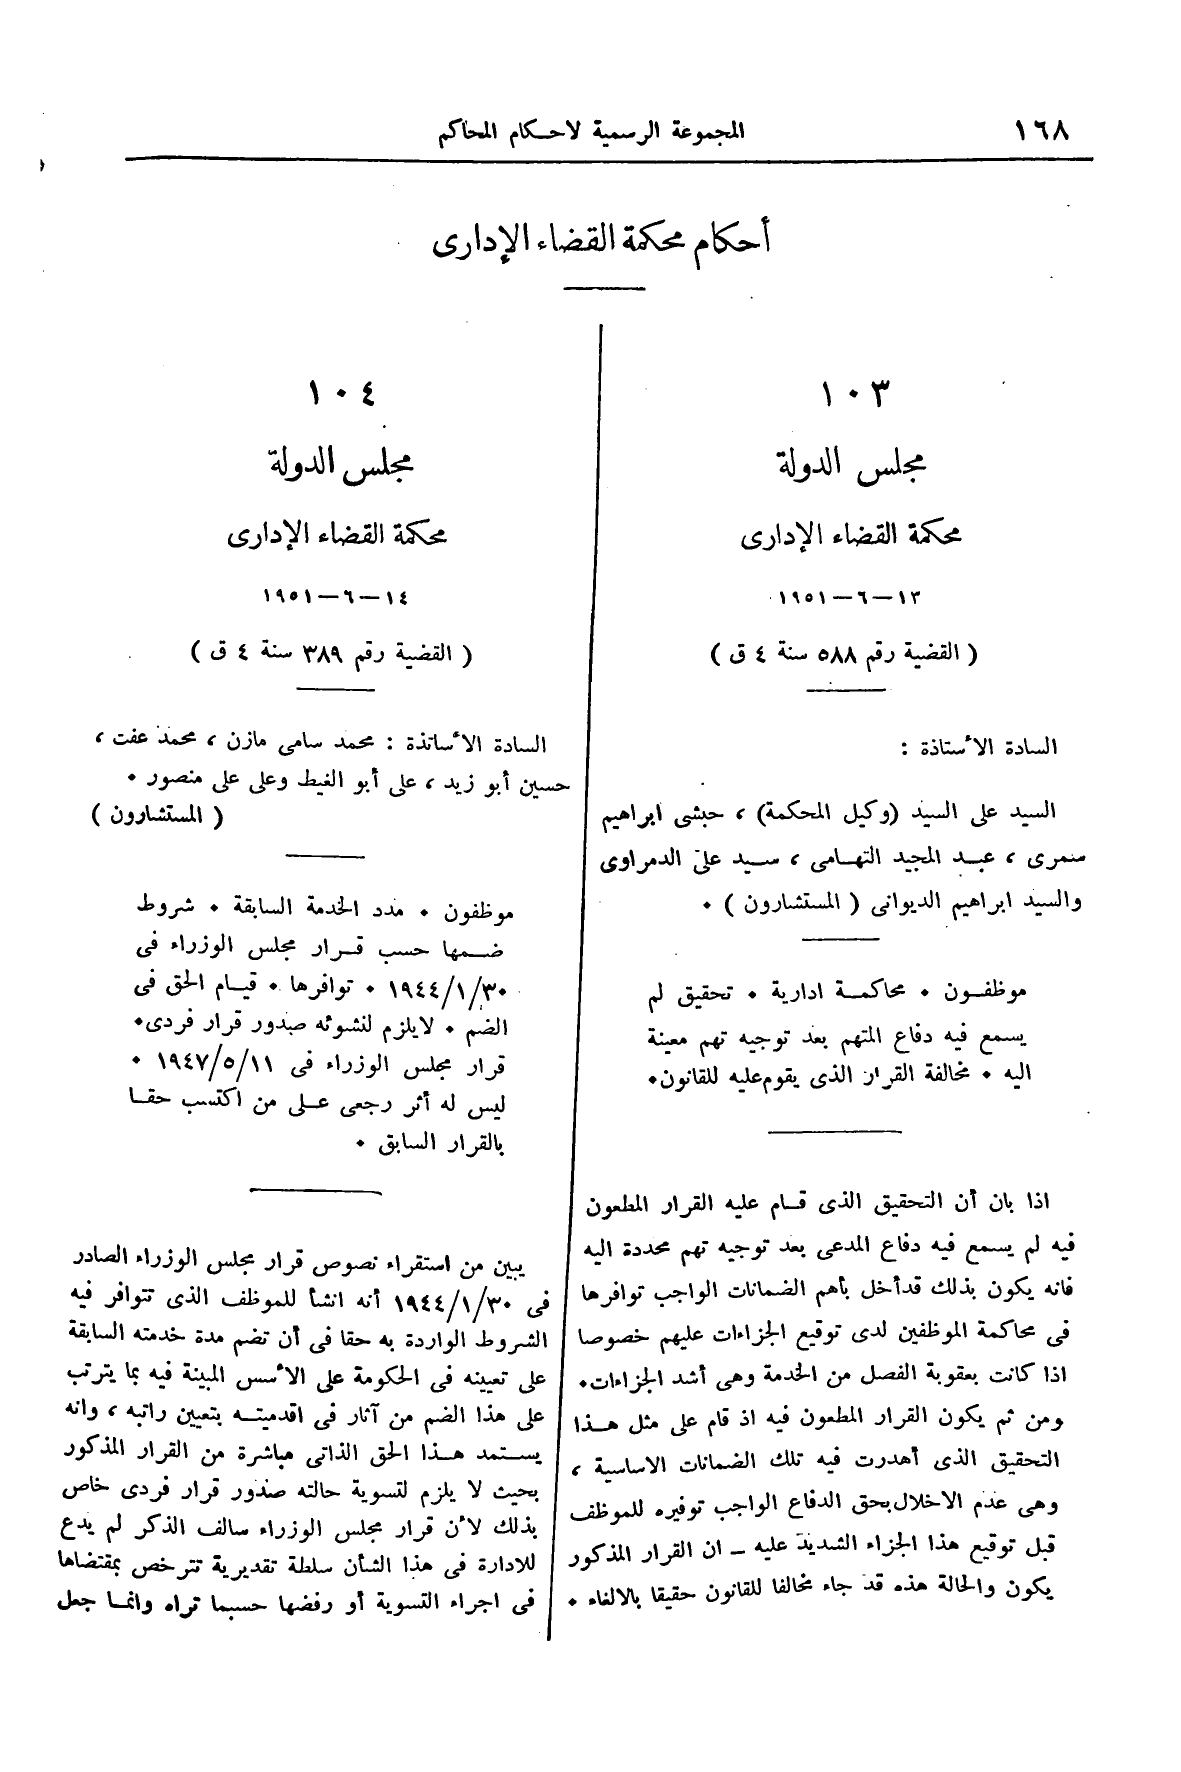 ١٦٨
المجموعة الرسمية لاحكام المحاكم
أحكام محكمة القضاء الإدارى
١٠٣
مجلس الدولة
محكمة القضاء الإدارى
١٣ – ٦ – ١٩٥١
( القضية رقم ٥٨٨ سنة ٤ ق )
السادة الأستاذة :
السيد على السيد (وكيل المحكمة) ، حبشى ابراهيم
سمرى ، عبد المجيد التهامى ، سيد على الدمراوى
والسيد ابراهيم الديوانى ( المستشارون ) .
موظفون . محاكمة ادارية . تحقيق لم
يسمع فيه دفاع المتهم بعد توجيه تهم معينة
اليه . مخالفة القرار الذى يقوم عليه للقانون.
اذا بان أن التحقيق الذى قام عليه القرار المطعون
فيه لم يسمع فيه دفاع المدعى بعد توجيه تهم محددة اليه
فانه يكون بذلك قد أخل بأهم الضمانات الواجب توافرها
فى محاكمة الموظفين لدى توقيع الجزاءات عليهم خصوصا
اذا كانت بعقوبة الفصل من الخدمة وهى أشد الجزاءات.
ومن ثم يكون القرار المطعون فيه اذ قام على مثل هذا
التحقيق الذى أهدرت فيه تلك الضمانات الاساسية ،
وهى عدم الاخلال بحق الدفاع الواجب توفيره للموظف
قبل توقيع هذا الجزاء الشديد عليه – ان القرار المذكور
يكون والحالة هذه قد جاء مخالفا للقانون حقيقا بالالغاء .
١٠٤
مجلس الدولة
محكمة القضاء الإدارى
١٤ – ٦ – ١٩٥١
( القضية رقم ٣٨٩ سنة ٤ ق )
السادة الأساتذة : محمد سامى مازن ، محمد عفت ،
حسين أبو زيد ، على أبو الغيط وعلى على منصور .
( المستشارون )
موظفون . مدد الخدمة السابقة . شروط
ضمها حسب قرار مجلس الوزراء فى
١٩٤٤/١/٣٠ . توافرها . قيام الحق فى
الضم . لا يلزم لنشوئه صدور قرار فردى.
قرار مجلس الوزراء فى ١٩٤٧/٥/١١ .
ليس له أثر رجعى على من اكتسب حقا
بالقرار السابق .
يبين من استقراء نصوص قرار مجلس الوزراء الصادر
فى ١٩٤٤/١/٣٠ أنه انشأ للموظف الذى تتوافر فيه
الشروط الواردة به حقا فى أن تضم مدة خدمته السابقة
على تعيينه فى الحكومة على الأسس المبينة فيه بما يترتب
على هذا الضم من آثار فى اقدميته بتعيين راتبه ، وانه
يستمد هذا الحق الذاتى مباشرة من القرار المذكور
بحيث لا يلزم لتسوية حالته صدور قرار فردى خاص
بذلك لأن قرار مجلس الوزراء سالف الذكر لم يدع
للادارة فى هذا الشأن سلطة تقديرية تترخص بمقتضاها
فى اجراء التسوية أو رفضها حسبما تراه وانما جعل